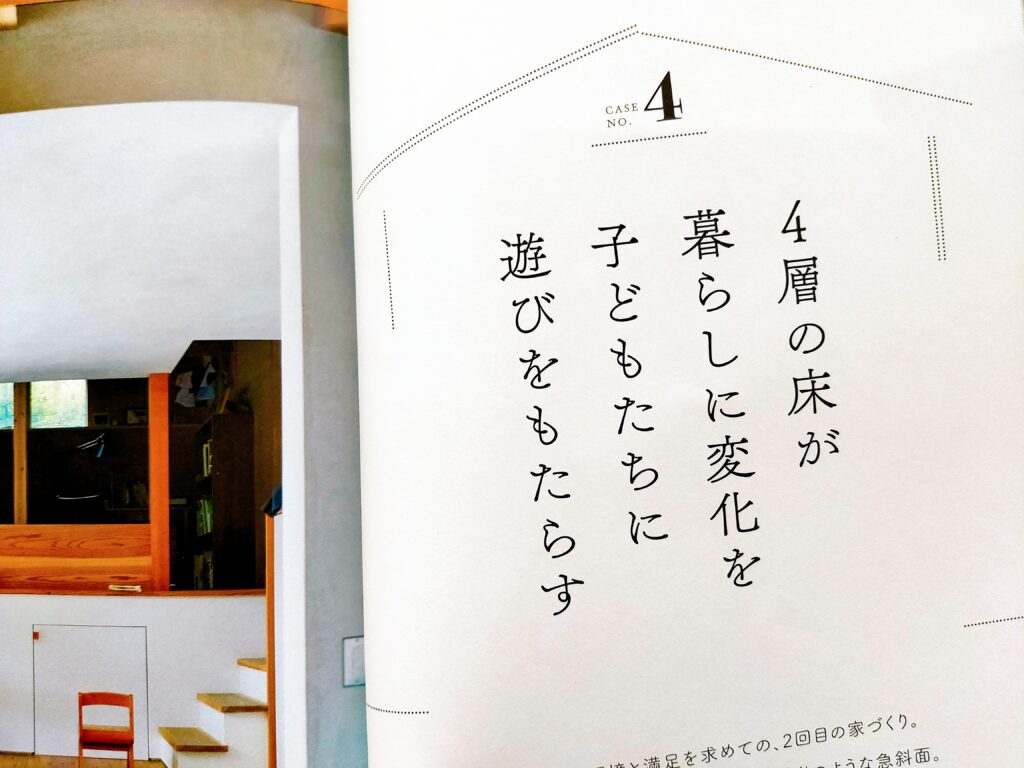 CASE
NO. 4
4層の床が
暮らしに変化を
子どもたちに
遊びをもたらす
と満足を求めての、2回目の家づくり。
のような急斜面。